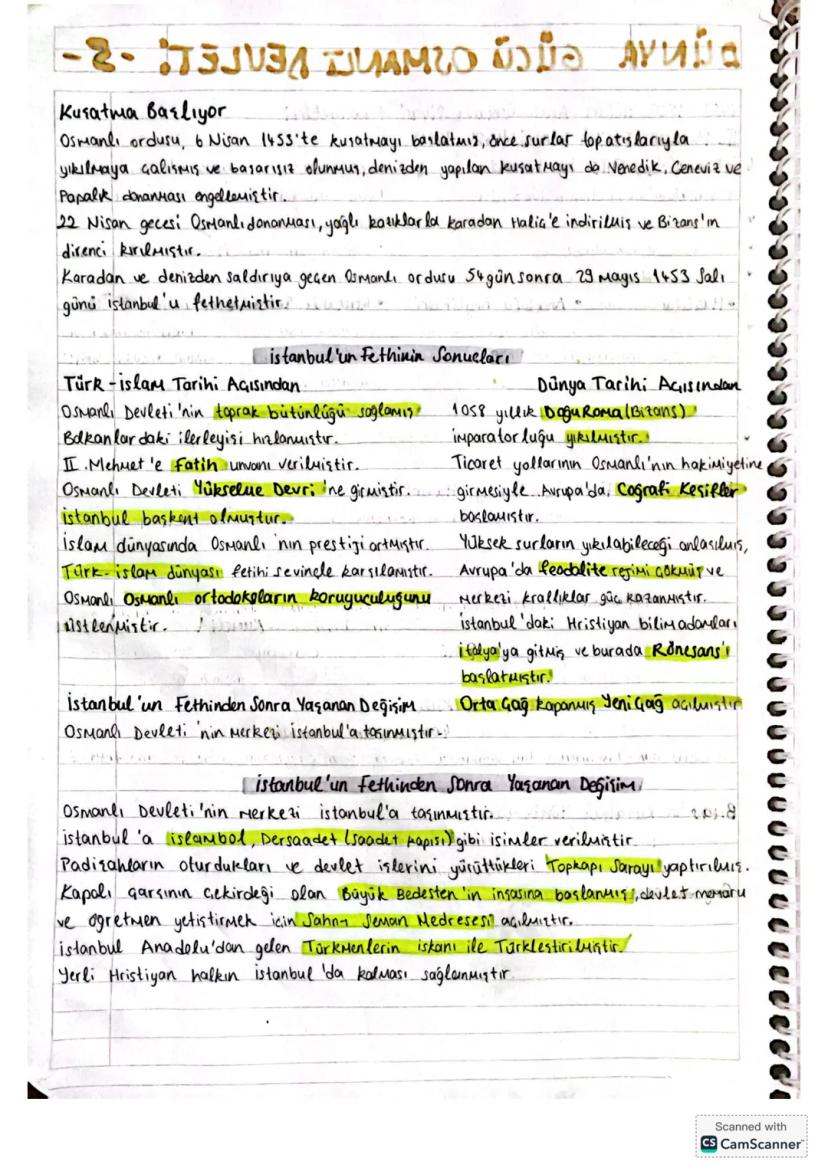 DÜNYA GÜCÜ OSMANLI DEVLETİ -3-
Kuşatma Başlıyor
Osmanlı ordusu, 6 Nisan 1453'te kuşatmayı başlatmış, önce surlar top atışlarıyla
yıkılmaya çalışmış ve başarısız olunmuş, denizden yapılan kuşatmayı da Venedik, Ceneviz ve
Papalık donanması engellemiştir.
22 Nisan gecesi Osmanlı donanması, yağlı kazıklarla karadan Haliç'e indirilmiş ve Bizans'ın
direnci kırılmıştır.
Karadan ve denizden saldırıya geçen Osmanlı ordusu 54 gün sonra 29 Mayıs 1453 Salı
günü İstanbul'u fethetmiştir.
İstanbul'un Fethinin Sonuçları
Türk-İslam Tarihi Açısından
Osmanlı Devleti'nin toprak bütünlüğü sağlamış
Balkanlardaki ilerleyişi hızlanmıştır.
II. Mehmet'e Fatih unvanı verilmiştir.
Osmanlı Devleti Yükselme Devri'ne girmiştir.
İstanbul başkent olmuştur.
İslam dünyasında Osmanlı'nın prestiji artmıştır.
Türk-İslam dünyası fetihi sevinçle karşılamıştır.
Osmanlı Osmanlı ortodoksların koruyuculuğunu
üstlenmiştir.
Dünya Tarihi Açısından
1058 yıllık Doğu Roma (Bizans)
imparatorluğu yıkılmıştır.
Ticaret yollarının Osmanlı'nın hakimiyetine
girmesiyle Avrupa'da, Coğrafi Keşifler
başlamıştır.
Yüksek surların yıkılabileceği anlaşılmış,
Avrupa'da feodalite rejimi çökmüş ve
merkezi krallıklar güç kazanmıştır.
İstanbul'daki Hristiyan bilim adamları
İtalya'ya gitmiş ve burada Rönesans'ı
başlatmıştır.
Orta Çağ kapanmış Yeni Çağ açılmıştır
İstanbul'un Fethinden Sonra Yaşanan Değişim
Osmanlı Devleti'nin merkezi İstanbul'a taşınmıştır.
İstanbul'un Fethinden Sonra Yaşanan Değişim
Osmanlı Devleti'nin merkezi İstanbul'a taşınmıştır.
İstanbul'a İslambol, Dersaadet (Saadet kapısı) gibi isimler verilmiştir.
Padişahların oturdukları ve devlet işlerini yürüttükleri Topkapı Sarayı yaptırılmış.
Kapalı çarşının çekirdeği olan Büyük Bedesten'in inşasına başlanmış, devlet memuru
ve öğretmen yetiştirmek için Sahn-ı Seman Medresesi açılmıştır.
İstanbul Anadolu'dan gelen Türkmenlerin iskanı ile Türkleştirilmiştir.
Yerli Hristiyan halkın İstanbul'da kalması sağlanmıştır
Scanned with
CS CamScanner